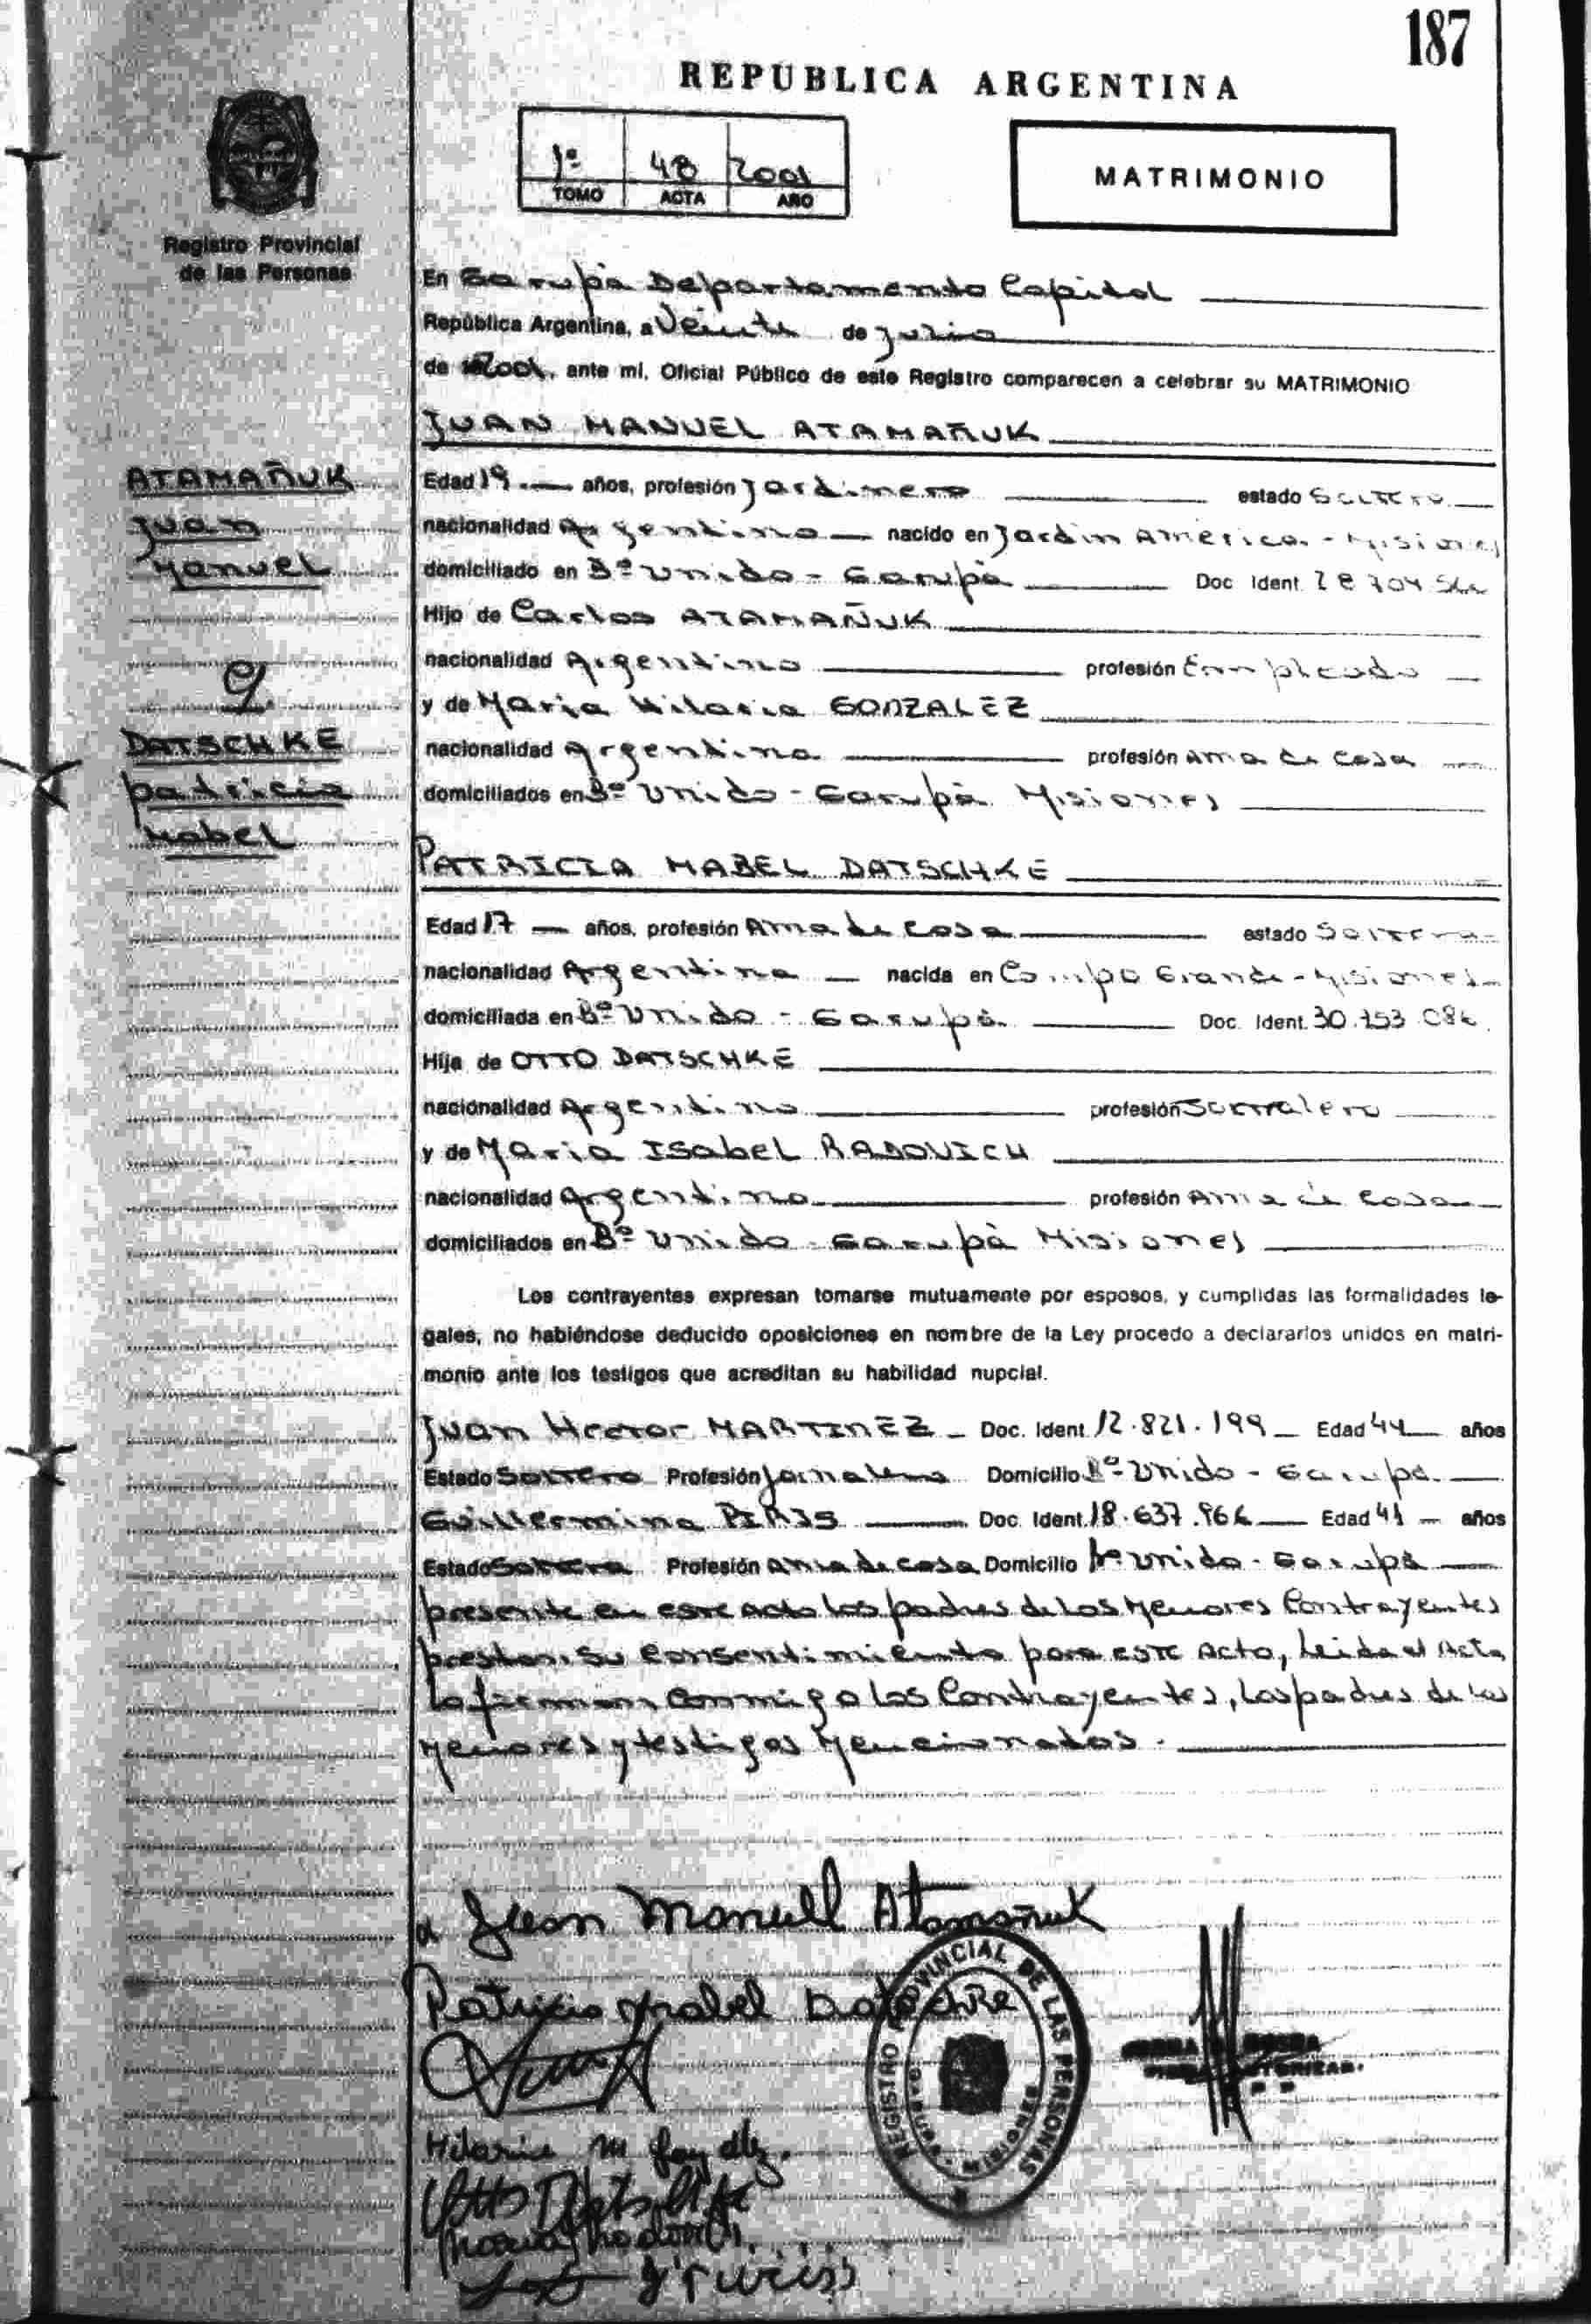 187
REPUBLICA ARGENTINA
1º 48 2001
TOMO ACTA AÑO
MATRIMONIO
Registro Provincial
de las Personas
En Garupà Departamento Capital
República Argentina, a Veinte de Julio
de 2001, ante mi, Oficial Público de este Registro comparecen a celebrar su MATRIMONIO
JUAN MANUEL ATAMAÑUK
ATAMAÑUK
Juan
Manuel
Edad 19 años, profesión Jardinero estado Soltero
nacionalidad Argentino nacido en Jardin America - Misiones
domiciliado en Bº Unido - Garupà Doc Ident. 28 704
Hijo de Carlos ATAMAÑUK
nacionalidad Argentino profesión Empleado
y de Maria Hilaria GONZALEZ
nacionalidad Argentina profesión Ama de Casa
domiciliados en Bº Unido - Garupà Misiones
DATSCHKE
patricia
Mabel
PATRICIA MABEL DATSCHKE
Edad 17 años, profesión Ama de Casa estado Soltera
nacionalidad Argentina nacida en Campo Grande - Misiones
domiciliada en Bº Unido - Garupà Doc. Ident. 30.753
Hija de OTTO DATSCHKE
nacionalidad Argentino profesión
y de Maria ISabel RADOVICH
nacionalidad Argentina profesión Ama de Casa
domiciliados en Bº Unido - Garupà Misiones
Los contrayentes expresan tomarse mutuamente por esposos, y cumplidas las formalidades le-
gales, no habiéndose deducido oposiciones en nombre de la Ley procedo a declararlos unidos en matri-
monio ante los testigos que acreditan su habilidad nupcial.
Juan Hector MARTINEZ Doc. Ident 12.821.199 Edad 44 años
Estado Soltero Profesión Jornalero Domicilio Bº Unido - Garupà
Guillermina PIRIS Doc. Ident. 18.637.966 Edad 41 años
Estado Soltera Profesión Ama de casa Domicilio Bº Unido - Garupà
presente en este acto los padres de los Menores Contrayentes
prestan su Consentimiento para este Acto, Leida el Acta
la firman Conmigo los Contrayentes, los padres de los
Menores y testigos Mencionados.
Juan Manuel Atamañuk
Patricia Mabel Datschke
REGISTRO PROVINCIAL DE LAS PERSONAS
MISIONES
Hilaria M
Otto Datschke
Maria